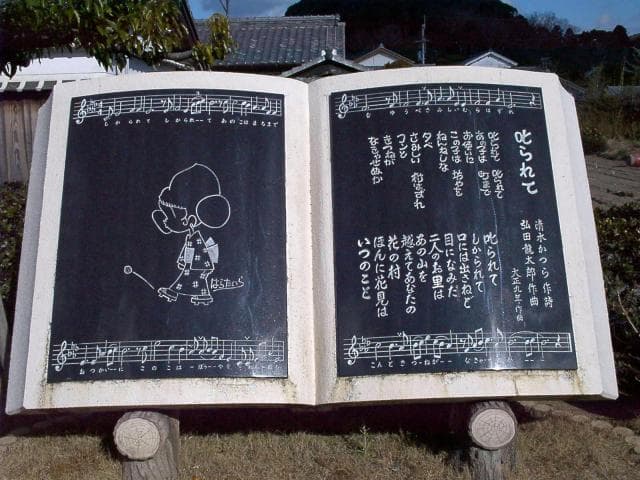 しかられて しかられーて あのこはまちまで
おつかいーに このこは ーぼうーやを
はらたいら
ゆうべさみしいむらはずれ
こんときつーねが
叱られて
清水かつら作詩
弘田龍太郎作曲
大正九年作曲
叱られて 叱られて
あの子は 町まで
お使いに
この子は 坊やを
ねんねしな
夕べ
さみしい 村はずれ
コンと
きつねが
なきゃせぬか
叱られて
しかられて
口には出さねど
目になみだ
二人のお里は
あの山を
越えてあなたの
花の村
ほんに花見は
いつのこと